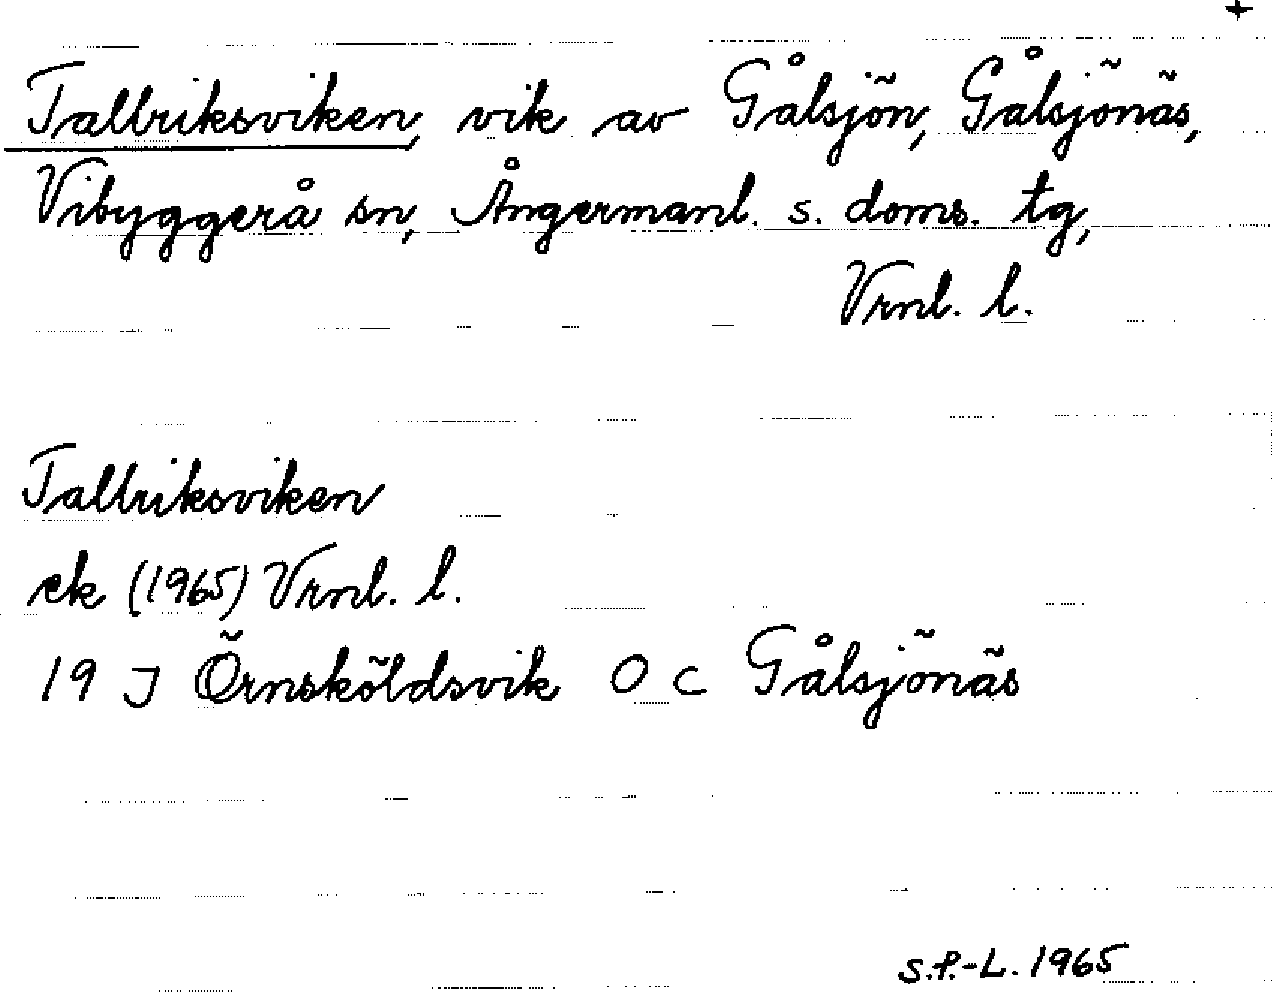 +
Tallriksviken, vik av Gålsjön, Gålsjönäs,
Vibyggerå sn, Ångermanl. s. doms. tg,
Vrnl. l.
Tallriksviken
ek (1965) Vrnl. l.
19 J Örnsköldsvik O c Gålsjönäs
S.P.-L. 1965